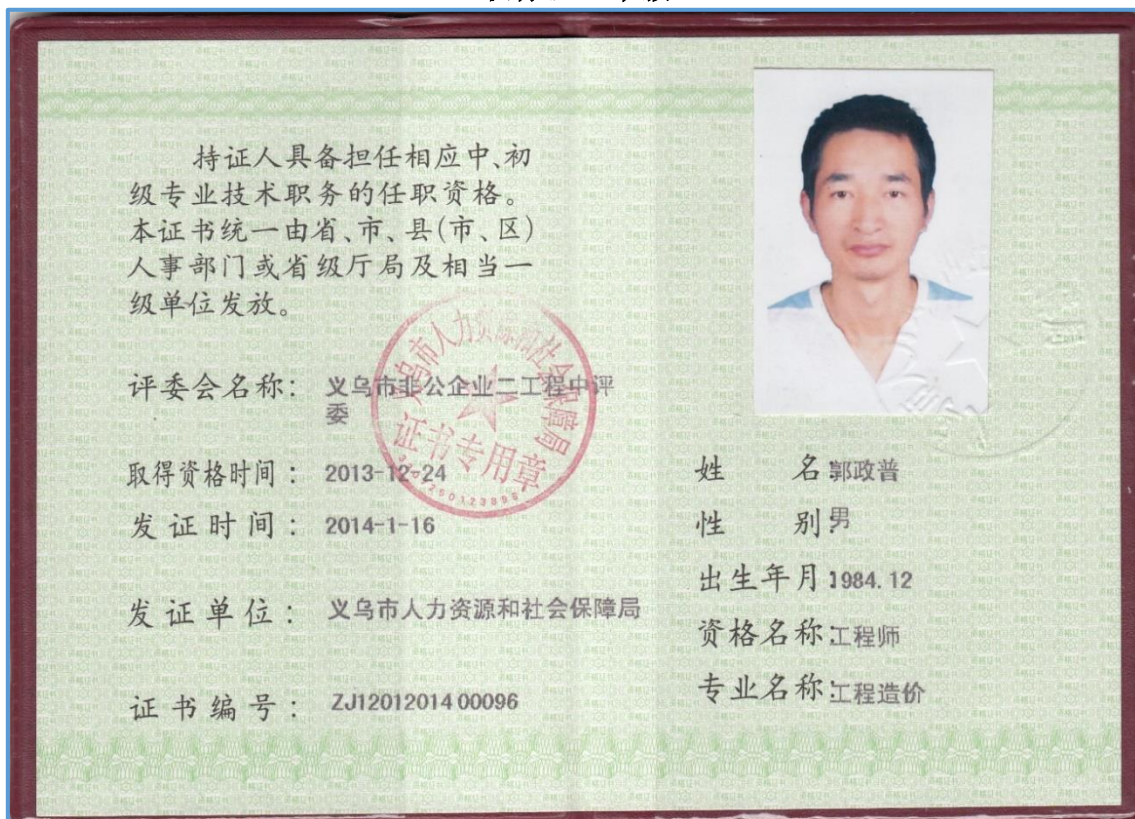 持证人具备担任相应中、初
级专业技术职务的任职资格。
本证书统一由省、市、县(市、区)
人事部门或省级厅局及相当一
级单位发放。
评委会名称: 义乌市非公企业二工程中评
委
取得资格时间: 2013-12-24
发证时间: 2014-1-16
发证单位: 义乌市人力资源和社会保障局
证书编号: ZJ12012014 00096
义乌市人力资源和社会保障局
证书专用章
姓 名:郭政普
性 别:男
出生年月:1984.12
资格名称:工程师
专业名称:工程造价